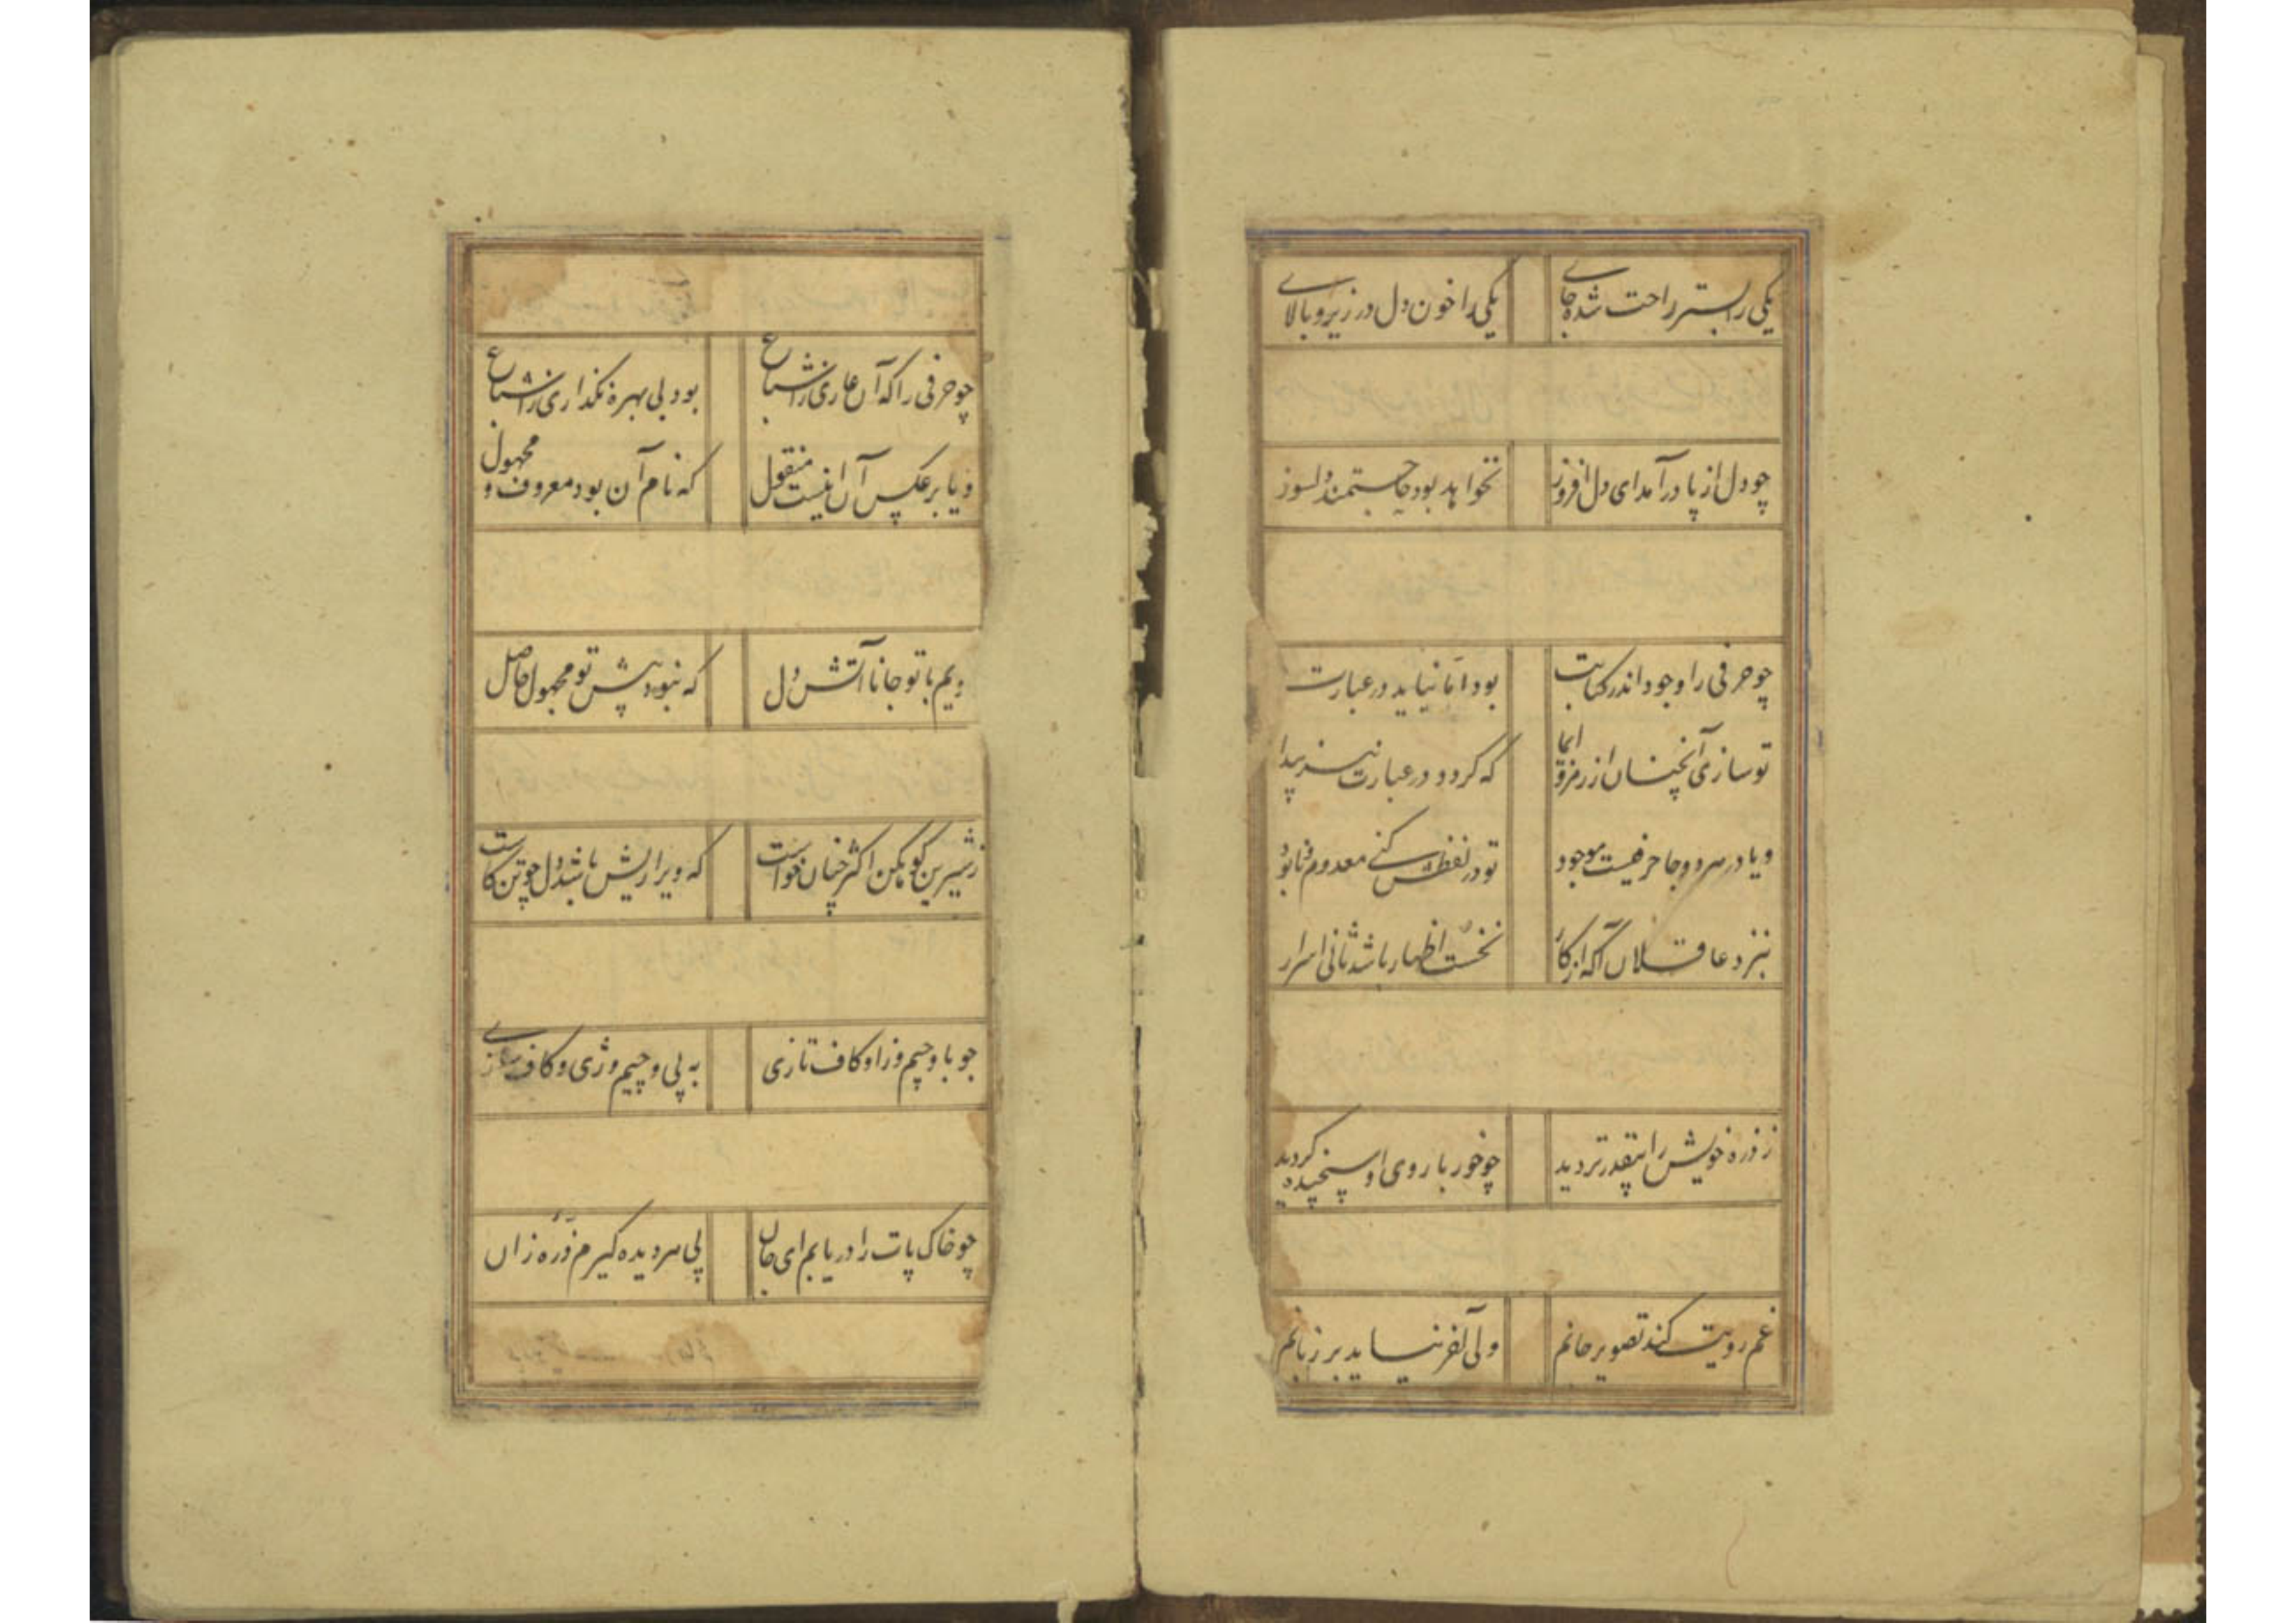 یکی را بستر راحت شده جای یکی را خون دل در زیر و بالای
چو دل از پا درآمد ای دل افروز نخواهد بود جا مستمند دلسوز
چو حرفی را وجود اندر کتابت بود اما نیاید در عبارت
تو سازی آنچنان از رمز و ایما که گردد در عبارت نیز پیدا
و یا در هر دو جا حرفیست موجود تو در لفظش کنی معدوم و نابود
بنزد عاقلان آگه از کار نخست اظهار باشد ثانی اسرار
ز ذره خویش را بیقدرتر دید چو خور با روی او سنجیده گردید
غم رویت کند تصویر جانم ولی آخر نیاید بر زبانم
چو حرفی را که آن عاری ز اشباع بود بی بهره نگذاری ز اشباع
و یا بر عکس آن اینست منقول که نام آن بود معروف و مجهول
دیم با تو جانا آتش دل که نبود پیش تو مجهول حاصل
ز شیرین کوهکن اکثر چنان خواست که ویرا ریش باشد دل چو تن کاست
چو با و جیم و زا و کاف تازی به پی و چیم و ژی و کاف سازی
چو خاک پات را دریابم ای جان پی هر دیده گیرم ذره زان